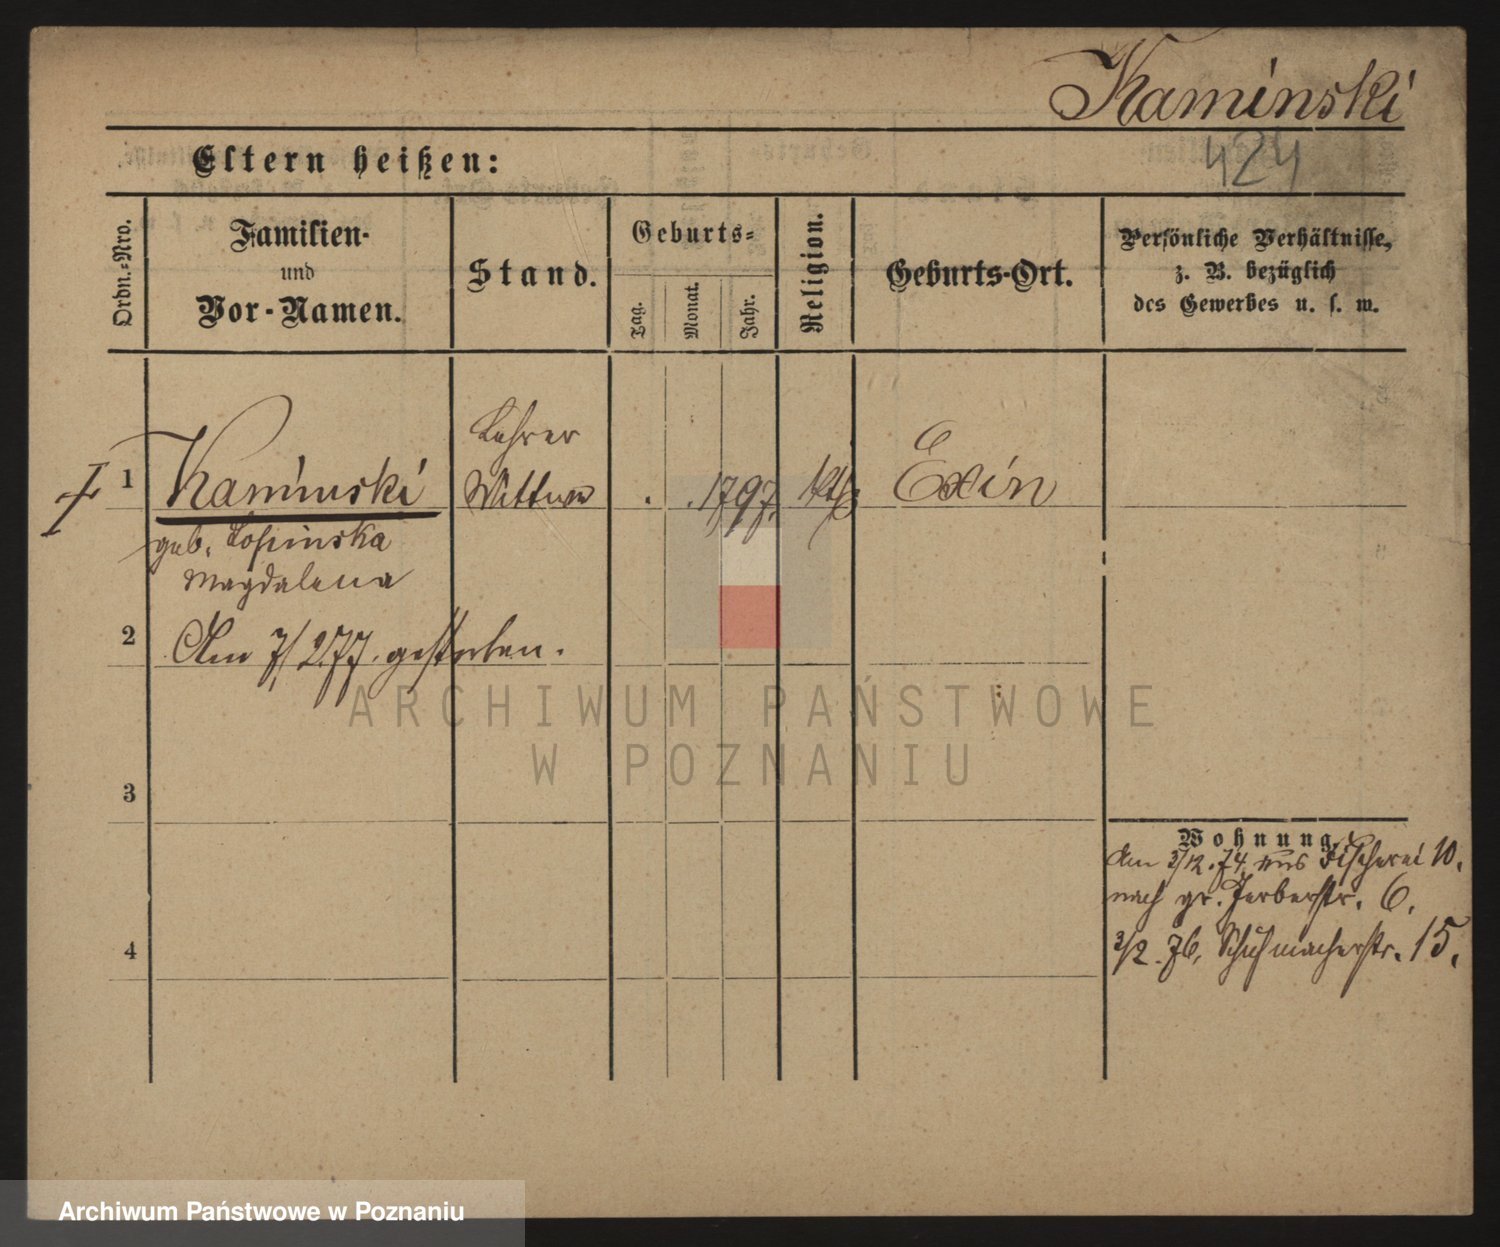 Kaminski
424
Eltern heißen:
Ordn.-Nro.
Familien-
und
Vor-Namen.
Stand.
Geburts-
Tag.
Monat.
Jahr.
Religion.
Geburts-Ort.
Persönliche Verhältnisse,
z. B. bezüglich
des Gewerbes u. s. w.
1
Kaminski
geb.
Magdalena
Lehrer
Wittwe
1797.
kth.
Exin
2
Am 7/2 77. gestorben.
3
4
Wohnung.
Am 3/12. 74. aus Fischerei 10.
nach gr. Gerberstr. 6.
3/2. 76. Schuhmacherstr. 15.
ARCHIWUM PAŃSTWOWE
W POZNANIU
Archiwum Państwowe w Poznaniu